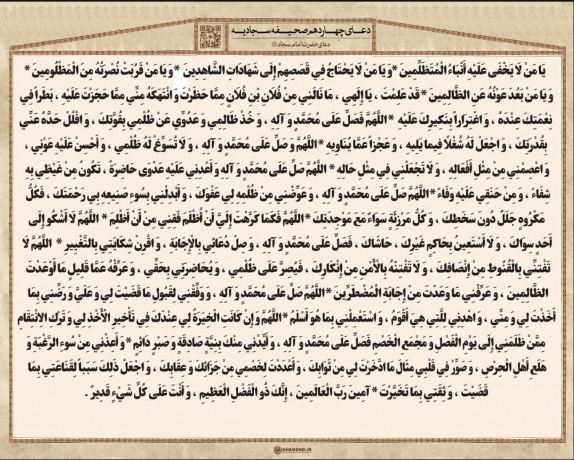 دعای چهاردهم صحیفه سجادیه
دعای حضرت امام سجاد
يَا مَنْ لَا يَخْفَى عَلَيْهِ أَنْبَاءُ الْمُتَظَلِّمِينَ * وَ يَا مَنْ لَا يَحْتَاجُ فِي قَصَصِهِمْ إِلَى شَهَادَاتِ الشَّاهِدِينَ * وَ يَا مَنْ قَرُبَتْ نُصْرَتُهُ مِنَ الْمَظْلُومِينَ *
وَ يَا مَنْ بَعُدَ عَوْنُهُ عَنِ الظَّالِمِينَ * قَدْ عَلِمْتَ ، يَا إِلَهِي ، مَا نَالَنِي مِنْ فُلَانِ بْنِ فُلَانٍ مِمَّا حَظَرْتَ وَ انْتَهَكَهُ مِنِّي مِمَّا حَجَزْتَ عَلَيْهِ ، بَطَراً فِي
نِعْمَتِكَ عِنْدَهُ ، وَ اغْتِرَاراً بِنَكِيرِكَ عَلَيْهِ * اللَّهُمَّ فَصَلِّ عَلَى مُحَمَّدٍ وَ آلِهِ ، وَ خُذْ ظَالِمِي وَ عَدُوِّي عَنْ ظُلْمِي بِقُوَّتِكَ ، وَ افْلُلْ حَدَّهُ عَنِّي
بِقُدْرَتِكَ ، وَ اجْعَلْ لَهُ شُغْلًا فِيمَا يَلِيهِ ، وَ عَجْزاً عَمَّا يُنَاوِيهِ * اللَّهُمَّ وَ صَلِّ عَلَى مُحَمَّدٍ وَ آلِهِ ، وَ لَا تُسَوِّغْ لَهُ ظُلْمِي ، وَ أَحْسِنْ عَلَيْهِ عَوْنِي ،
وَ اعْصِمْنِي مِنْ مِثْلِ أَفْعَالِهِ ، وَ لَا تَجْعَلْنِي فِي مِثْلِ حَالِهِ * اللَّهُمَّ صَلِّ عَلَى مُحَمَّدٍ وَ آلِهِ وَ أَعْدِنِي عَلَيْهِ عَدْوَى حَاضِرَةً ، تَكُونُ مِنْ غَيْظِي بِهِ
شِفَاءً ، وَ مِنْ حَنَقِي عَلَيْهِ وَفَاءً * اللَّهُمَّ صَلِّ عَلَى مُحَمَّدٍ وَ آلِهِ ، وَ عَوِّضْنِي مِنْ ظُلْمِهِ لِي عَفْوَكَ ، وَ أَبْدِلْنِي بِسُوءِ صَنِيعِهِ بِي رَحْمَتَكَ ، فَكُلُّ
مَكْرُوهٍ جَلَلٌ دُونَ سَخَطِكَ ، وَ كُلُّ مَرْزِئَةٍ سَوَاءٌ مَعَ مَوْجِدَتِكَ * اللَّهُمَّ فَكَمَا كَرَّهْتَ إِلَيَّ أَنْ أُظْلَمَ فَقِنِي مِنْ أَنْ أَظْلِمَ * اللَّهُمَّ لَا أَشْكُو إِلَى
أَحَدٍ سِوَاكَ ، وَ لَا أَسْتَعِينُ بِحَاكِمٍ غَيْرِكَ ، حَاشَاكَ ، فَصَلِّ عَلَى مُحَمَّدٍ وَ آلِهِ ، وَ صِلْ دُعَائِي بِالْإِجَابَةِ ، وَ اقْرِنْ شِكَايَتِي بِالتَّغْيِيرِ * اللَّهُمَّ لَا
تَفْتِنِّي بِالْقُنُوطِ مِنْ إِنْصَافِكَ ، وَ لَا تَفْتِنْهُ بِالْأَمْنِ مِنْ إِنْكَارِكَ ، فَيُصِرَّ عَلَى ظُلْمِي ، وَ يُحَاضِرَنِي بِحَقِّي ، وَ عَرِّفْهُ عَمَّا قَلِيلٍ مَا أَوْعَدْتَ
الظَّالِمِينَ ، وَ عَرِّفْنِي مَا وَعَدْتَ مِنْ إِجَابَةِ الْمُضْطَرِّينَ * اللَّهُمَّ صَلِّ عَلَى مُحَمَّدٍ وَ آلِهِ ، وَ وَفِّقْنِي لِقَبُولِ مَا قَضَيْتَ لِي وَ عَلَيَّ وَ رَضِّنِي بِمَا
أَخَذْتَ لِي وَ مِنِّي ، وَ اهْدِنِي لِلَّتِي هِيَ أَقْوَمُ ، وَ اسْتَعْمِلْنِي بِمَا هُوَ أَسْلَمُ * اللَّهُمَّ وَ إِنْ كَانَتِ الْخِيَرَةُ لِي عِنْدَكَ فِي تَأْخِيرِ الْأَخْذِ لِي وَ تَرْكِ الِانْتِقَامِ
مِمَّنْ ظَلَمَنِي إِلَى يَوْمِ الْفَصْلِ وَ مَجْمَعِ الْخَصْمِ فَصَلِّ عَلَى مُحَمَّدٍ وَ آلِهِ ، وَ أَيِّدْنِي مِنْكَ بِنِيَّةٍ صَادِقَةٍ وَ صَبْرٍ دَائِمٍ * وَ أَعِذْنِي مِنْ سُوءِ الرَّغْبَةِ وَ
هَلَعِ أَهْلِ الْحِرْصِ ، وَ صَوِّرْ فِي قَلْبِي مِثَالَ مَا ادَّخَرْتَ لِي مِنْ ثَوَابِكَ ، وَ أَعْدَدْتَ لِخَصْمِي مِنْ جَزَائِكَ وَ عِقَابِكَ ، وَ اجْعَلْ ذَلِكَ سَبَباً لِقَنَاعَتِي بِمَا
قَضَيْتَ ، وَ ثِقَتِي بِمَا تَخَيَّرْتَ * آمِينَ رَبَّ الْعَالَمِينَ ، إِنَّكَ ذُو الْفَضْلِ الْعَظِيمِ ، وَ أَنْتَ عَلَى كُلِّ شَيْءٍ قَدِيرٌ .
KHAMENEI.IR